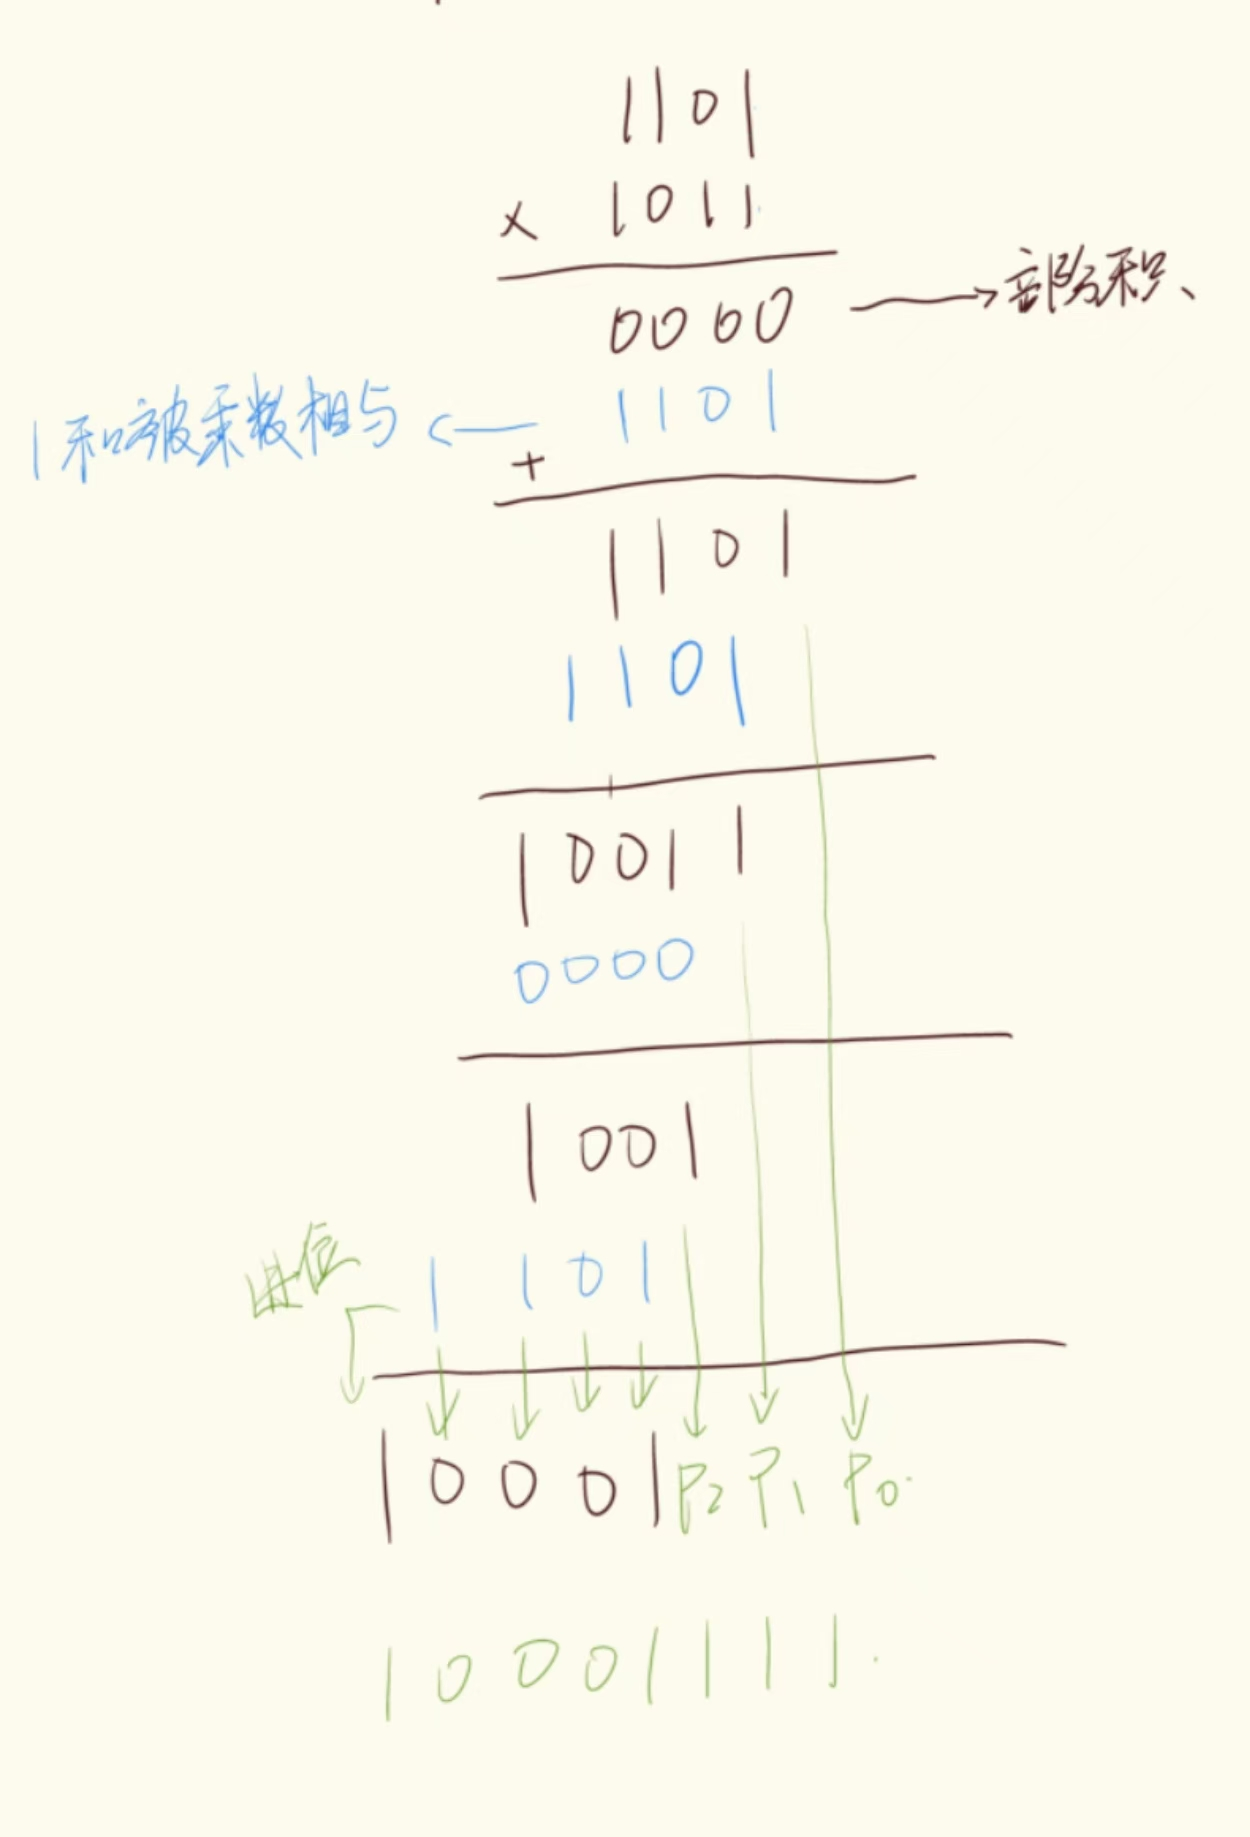 1101
× 1011
0000 → 部分积、
1和被乘数相与 ← 1101
+
1101
1101
10011
0000
1001
进位 1101
10001P2P1P0.
10001111.